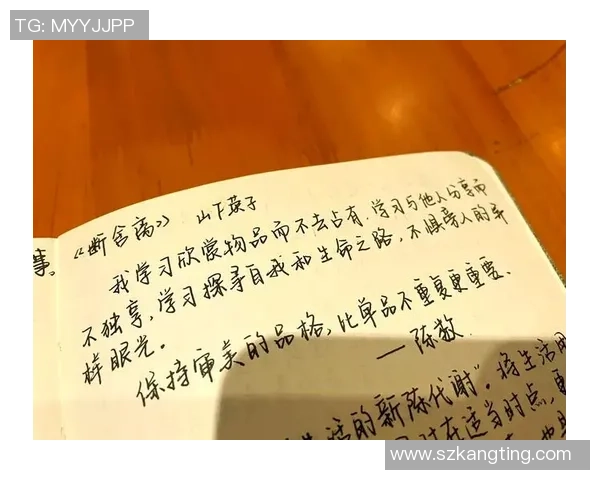 TG: MYYJJPP
《断舍离》 山下英子
事。
我学习欣赏物品而不去占有,学习与他人分享而
不独享,学习探寻自我和生命之路,不惧旁人的异
样眼光。
保持审美的品格,比单品不重复更重要、
——陈数
活的新陈代谢”。将生活用
对在适当时点,更
www.szkangting.com